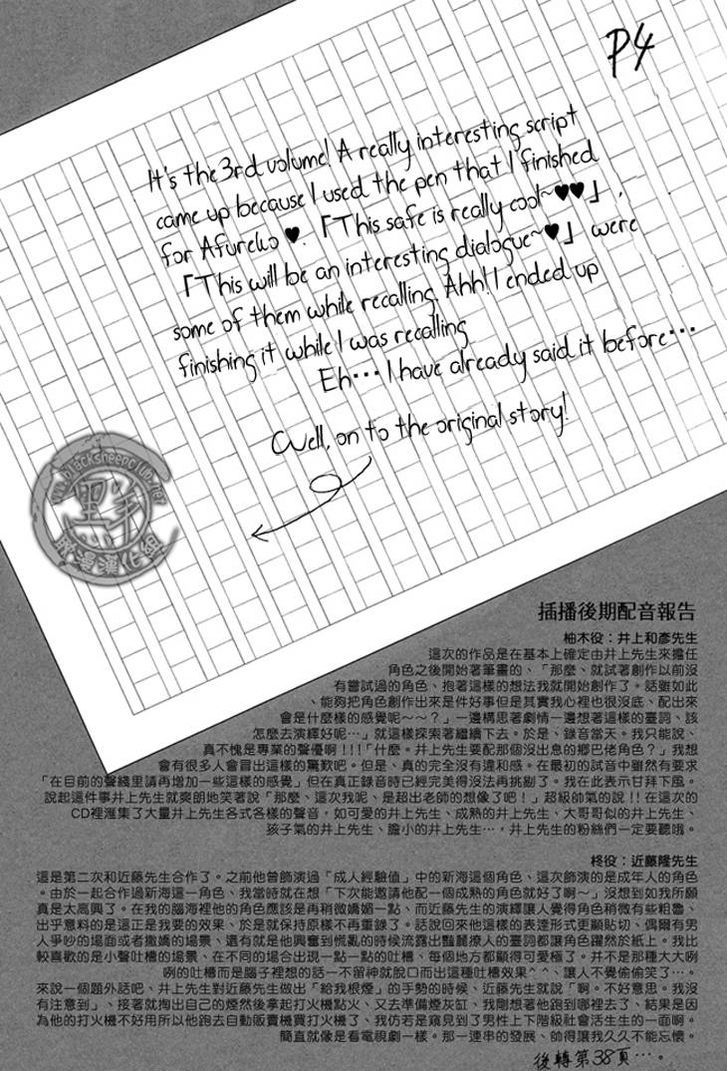 P4
It's the 3rd volume! A really interesting script
came up because I used the pen that I finished
for Afureko ♥. 「This safe is really cool~♥♥」,
「This will be an interesting dialogue~♥」 were
some of them while recalling. Ahh! I ended up
finishing it while I was recalling
Eh••• I have already said it before•••
Well, on to the original story!
www.blacksheepclub.net
黑羊
插播後期配音報告
柚木役：井上和彥先生
這次的作品是在基本上確定由井上先生來擔任
角色之後開始著筆畫的、「那麼、就試著創作以前沒
有嘗試過的角色、抱著這樣的想法我就開始創作了。話雖如此
、能夠把角色創作出來是件好事但是其實我心裡也很沒底、配出來
會是什麼樣的感覺呢～～？」一邊構思著劇情一邊想著這樣的臺詞、該
怎麼去演繹好呢…」就這樣探索著繼續下去。於是、錄音當天。我只能說、
真不愧是專業的聲優啊！！！「什麼。井上先生要配那個沒出息的鄉巴佬角色？」我想
會有很多人會冒出這樣的驚歎吧。但是、真的完全沒有違和感。在最初的試音中雖然有要求
「在目前的聲綫里請再增加一些這樣的感覺」但在真正錄音時已經完美得沒法再挑剔了。我在此表示甘拜下風。
說起這件事井上先生就爽朗地笑著說「那麼、這次我呢、是超出老師的想像了吧！」超級帥氣的說！！在這次的
CD裡滙集了大量井上先生各式各樣的聲音，如可愛的井上先生、成熟的井上先生、大哥哥似的井上先生、
孩子氣的井上先生、膽小的井上先生…，井上先生的粉絲們一定要聽哦。
柊役：近藤隆先生
這是第二次和近藤先生合作了。之前他曾飾演過「成人經驗值」中的新海這個角色、這次飾演的是成年人的角色
。由於一起合作過新海這一角色、我當時就在想「下次能邀請他配一個成熟的角色就好了啊～」沒想到如我所願
真是太高興了。在我的腦海裡他的角色應該是再稍微嬌媚一點、而近藤先生的演繹讓人覺得角色稍微有些粗魯、
出乎意料的是這正是我要的效果、於是就保持原樣不再重錄了。話說回來他這樣的表達形式更顯貼切、偶爾有男
人爭吵的場面或者撒嬌的場景、還有就是他興奮到慌亂的時候流露出豔麗撩人的臺詞都讓角色躍然於紙上。我比
較喜歡的是小聲吐槽的場景、在不同的場合出現一點一點的吐槽、每個地方都顯得可愛極了。并不是那種大大咧
咧的吐槽而是腦子裡想的話一不留神就脫口而出這種吐槽效果^ ^、讓人不覺偷偷笑了…。
來說一個題外話吧、井上先生對近藤先生做出「給我根煙」的手勢的時候、近藤先生就說「啊。不好意思。我沒
有注意到」、接著就掏出自己的煙然後拿起打火機點火、又去準備煙灰缸、我剛想著他跑到哪裡去了、結果是因
為他的打火機不好用所以他跑去自動販賣機買打火機了、我仿若是窺見到了男性上下階級社會活生生的一面啊。
簡直就像是看電視劇一樣。那一連串的發展、帥得讓我久久不能忘懷。
後轉第38頁…。